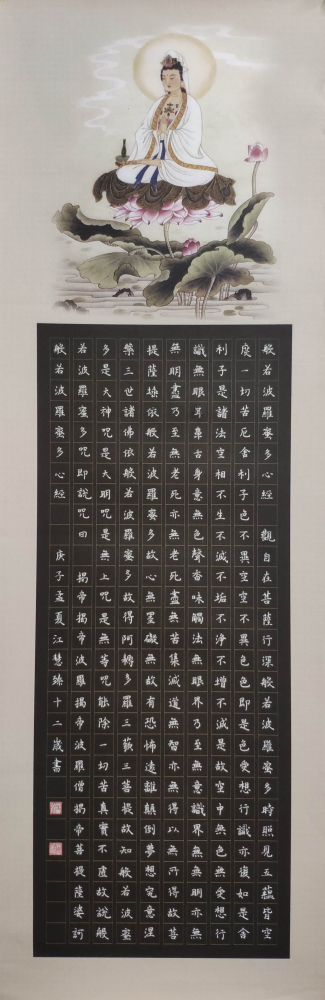 般若波羅蜜多心經 觀自在菩薩行深般若波羅蜜多時照見五蘊皆空
度一切苦厄舍利子色不異空空不異色色即是色受想行識亦復如是舍
利子是諸法空相不生不滅不垢不淨不增不減是故空中無色無受想行
識無眼耳鼻舌身意無色聲香味觸法無眼界乃至無意識界無無明亦無
無明盡乃至無老死亦無老死盡無苦集滅道無智亦無得以無所得故菩
提薩埵依般若波羅蜜多故心無罣礙無故有恐怖遠離顛倒夢想究竟涅
槃三世諸佛依般若波羅蜜多故得阿耨多羅三藐三菩提故知般若波蜜
多是大神咒是大明咒是無上咒是無等咒能除一切苦真實不虛故說般
若波羅蜜多咒即說咒曰 揭帝揭帝波羅揭帝波羅僧揭帝菩提薩婆訶
般若波羅蜜多心經 庚子孟夏江慧臻十二歲書